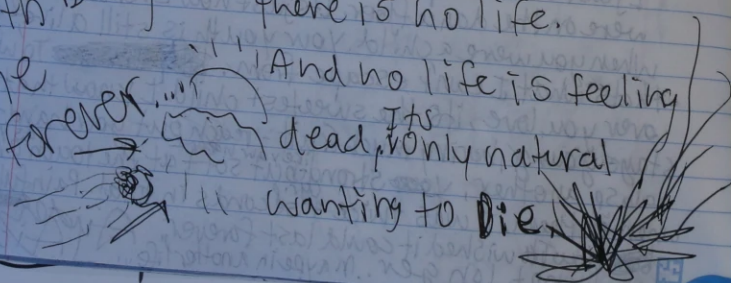 there is no life.
And no life is feeling
forever....
dead, Its only natural
wanting to Die.